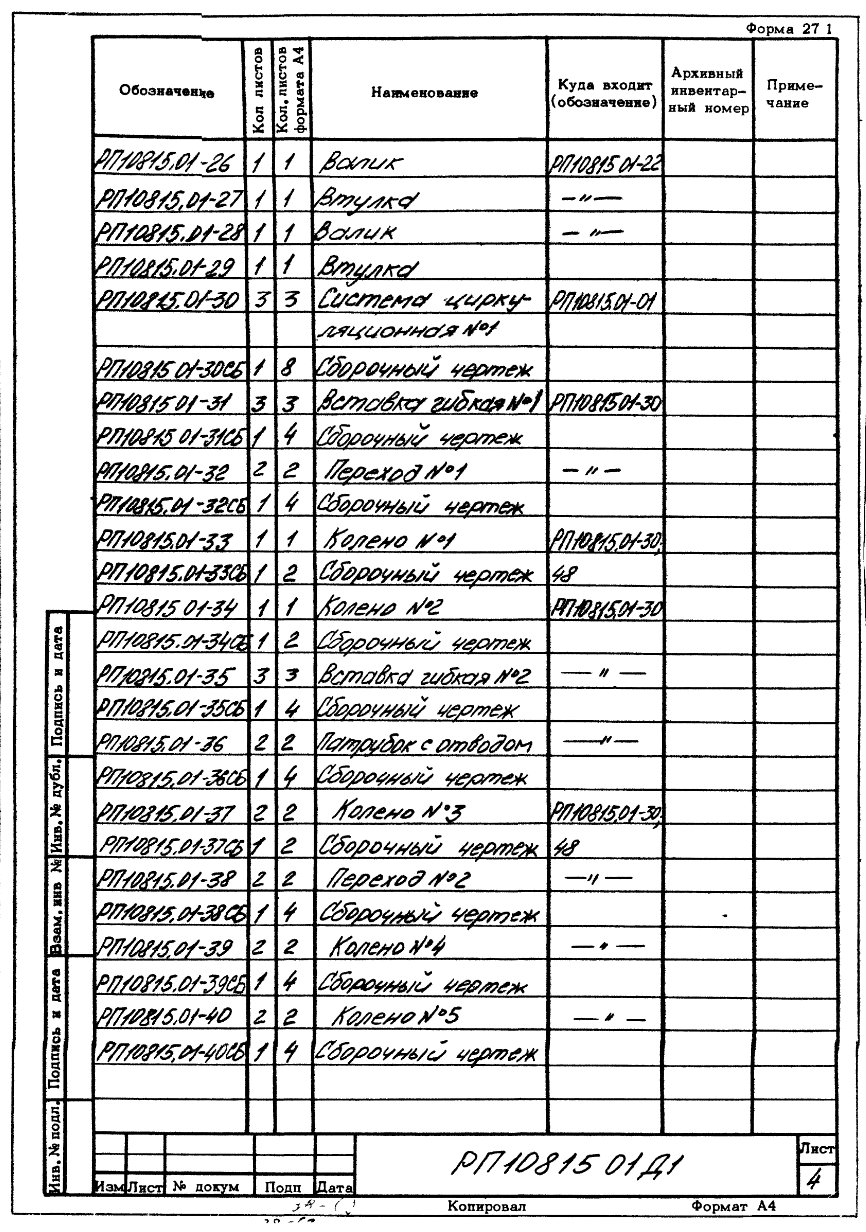 Форма 27 1
Обозначение Кол листов Кол. листов формата А4 Наименование Куда входит (обозначение) Архивный инвентарный номер Примечание
РП10815.01-26 1 1 Валик РП10815 01-22
РП10815.01-27 1 1 Втулка —〃—
РП10815.01-28 1 1 Валик —〃—
РП10815.01-29 1 1 Втулка
РП10815.01-30 3 3 Система цирку- РП10815.01-01
ляционная №1
РП10815 01-30СБ 1 8 Сборочный чертеж
РП10815 01-31 3 3 Вставка гибкая №1 РП10815 01-30
РП10815 01-31СБ 1 4 Сборочный чертеж
РП10815.01-32 2 2 Переход №1 —〃—
РП10815.01-32СБ 1 4 Сборочный чертеж
РП10815.01-33 1 1 Колено №1 РП10815.01-30,
РП10815.01-33СБ 1 2 Сборочный чертеж 48
РП10815 01-34 1 1 Колено №2 РП10815.01-30
РП10815.01-34СБ 1 2 Сборочный чертеж
РП10815.01-35 3 3 Вставка гибкая №2 —〃—
РП10815.01-35СБ 1 4 Сборочный чертеж
РП10815.01-36 2 2 Патрубок с отводом —〃—
РП10815.01-36СБ 1 4 Сборочный чертеж
РП10815.01-37 2 2 Колено №3 РП10815.01-30;
РП10815.01-37СБ 1 2 Сборочный чертеж 48
РП10815.01-38 2 2 Переход №2 —〃—
РП10815.01-38СБ 1 4 Сборочный чертеж
РП10815.01-39 2 2 Колено №4 —〃—
РП10815.01-39СБ 1 4 Сборочный чертеж
РП10815.01-40 2 2 Колено №5 —〃—
РП10815.01-40СБ 1 4 Сборочный чертеж
Подпись и дата
Инв. № дубл.
Взам. инв №
Подпись и дата
Инв. № подл.
Изм Лист № докум Подп Дата
РП10815 01Д1
Лист
4
Копировал Формат А4